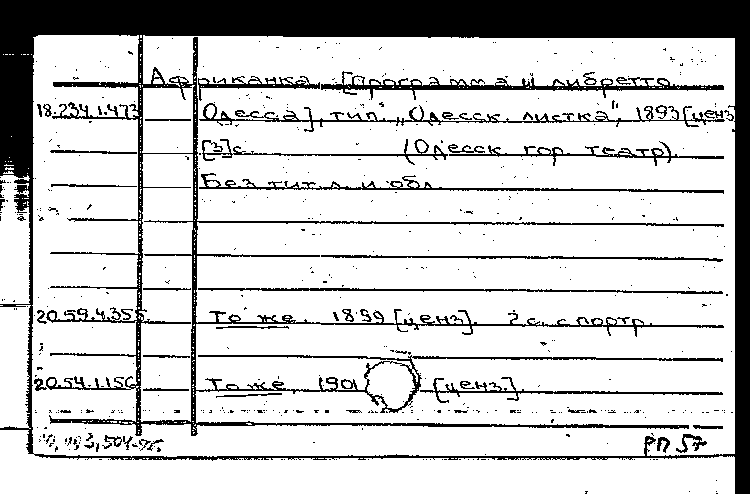 Африканка. [Программа и либретто.
18.234.1.473 Одесса], тип. „Одесск. листка", 1893 [ценз]
[3]с. (Одесск. гор. театр).
Без тит. л. и обл.
20.59.4.355. То же. 1899 [ценз]. 2 с. с портр.
20.54.1.150 То же. 1901 [ценз.].
РП 57